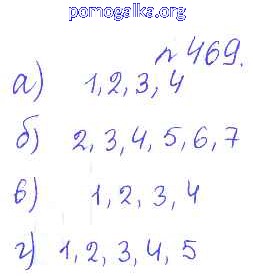 pomogalka.org
№ 469.
а) 1, 2, 3, 4
б) 2, 3, 4, 5, 6, 7
в) 1, 2, 3, 4
г) 1, 2, 3, 4, 5